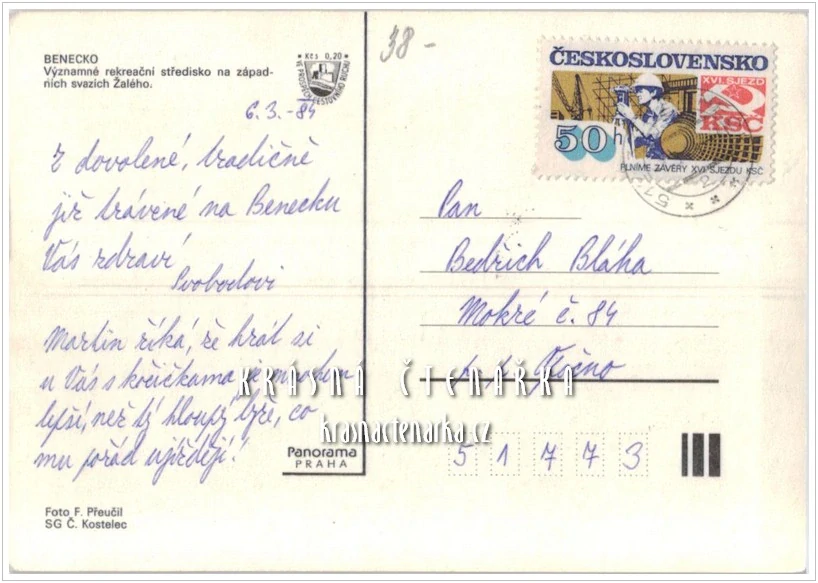 BENECKO
Významné rekreační středisko na západ-
ních svazích Žalého.
Kčs 0,20
VE PROSPĚCH CESTOVNÍHO RUCHU
6.3.-84
Z dovolené, tradičně
již trávené na Benecku
Vás zdraví
Svobodovi
Martin říká, že hrát si
u Vás s kočičkama je mnohem
lepší, než ty hloupý lyže, co
mu pořád ujíždějí!
Panorama
PRAHA
Foto F. Přeučil
SG Č. Kostelec
38-
ČESKOSLOVENSKO
XVI. SJEZD
KSČ
50h
PLNÍME ZÁVĚRY XVI. SJEZDU KSČ
Pan
Bedřich Bláha
Mokré č. 84
Očno
51773
KRÁSNÁ ČTENÁŘKA
krasnactenarka.cz